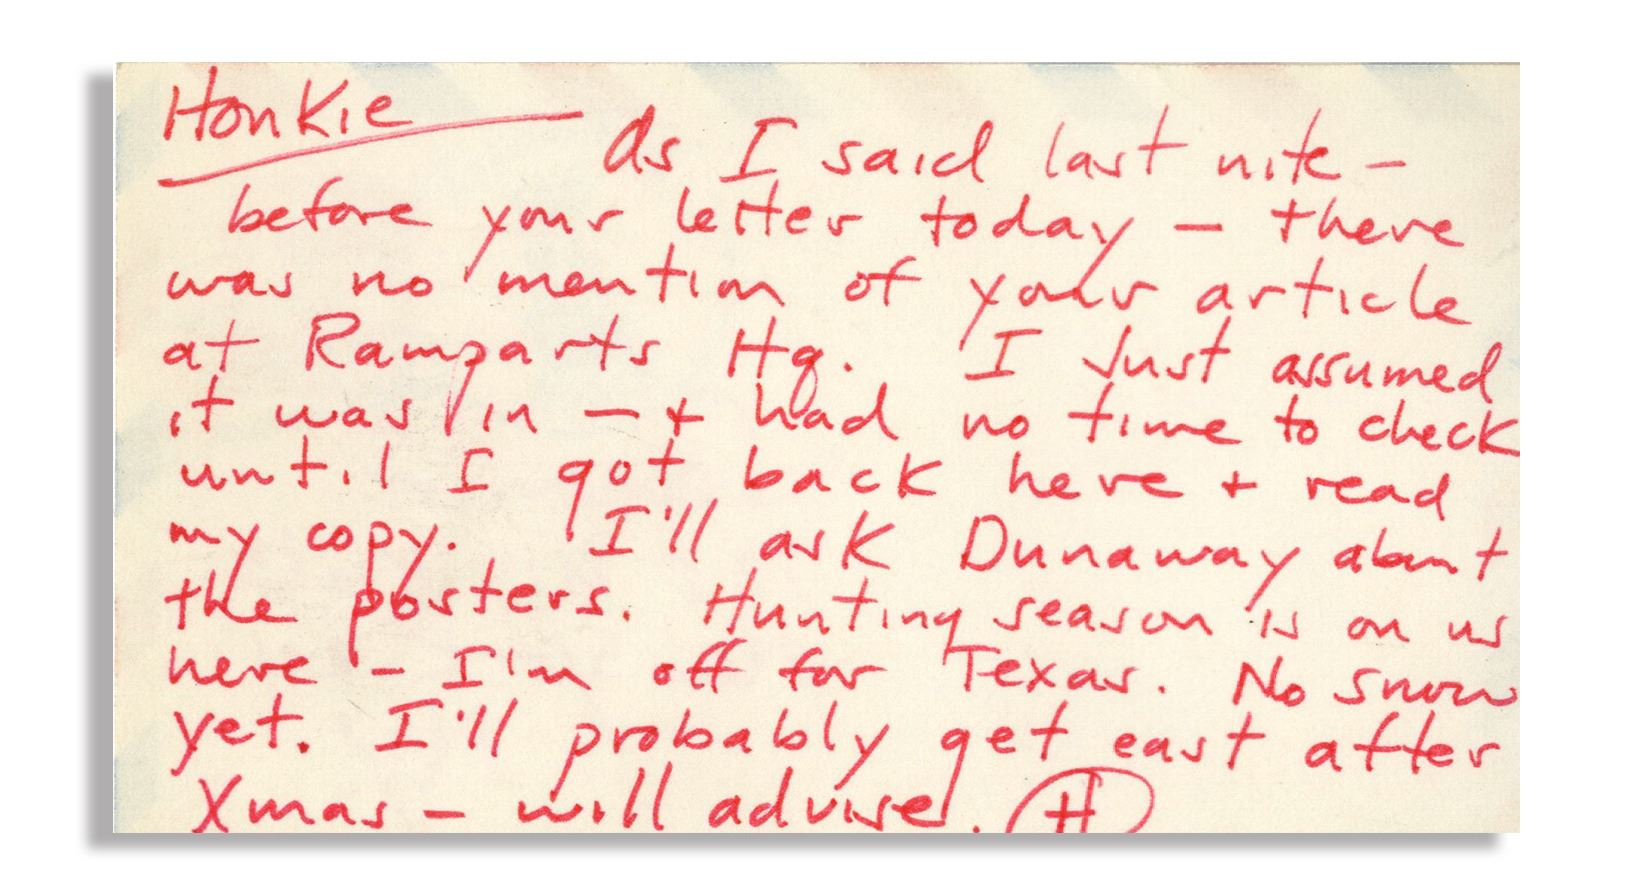 Honkie
As I said last nite –
before your letter today – there
was no mention of your article
at Ramparts Hq. I Just assumed
it was in – + had no time to check
until I got back here + read
my copy. I'll ask Dunaway about
the posters. Hunting season is on us
here – I'm off for Texas. No snow
yet. I'll probably get east after
Xmas – will advise. H